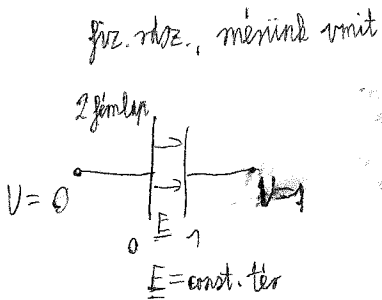 fiz. rdsz., mérünk vmit
2 fémlap
V = 0
V=1
0 E 1
E = const. tér